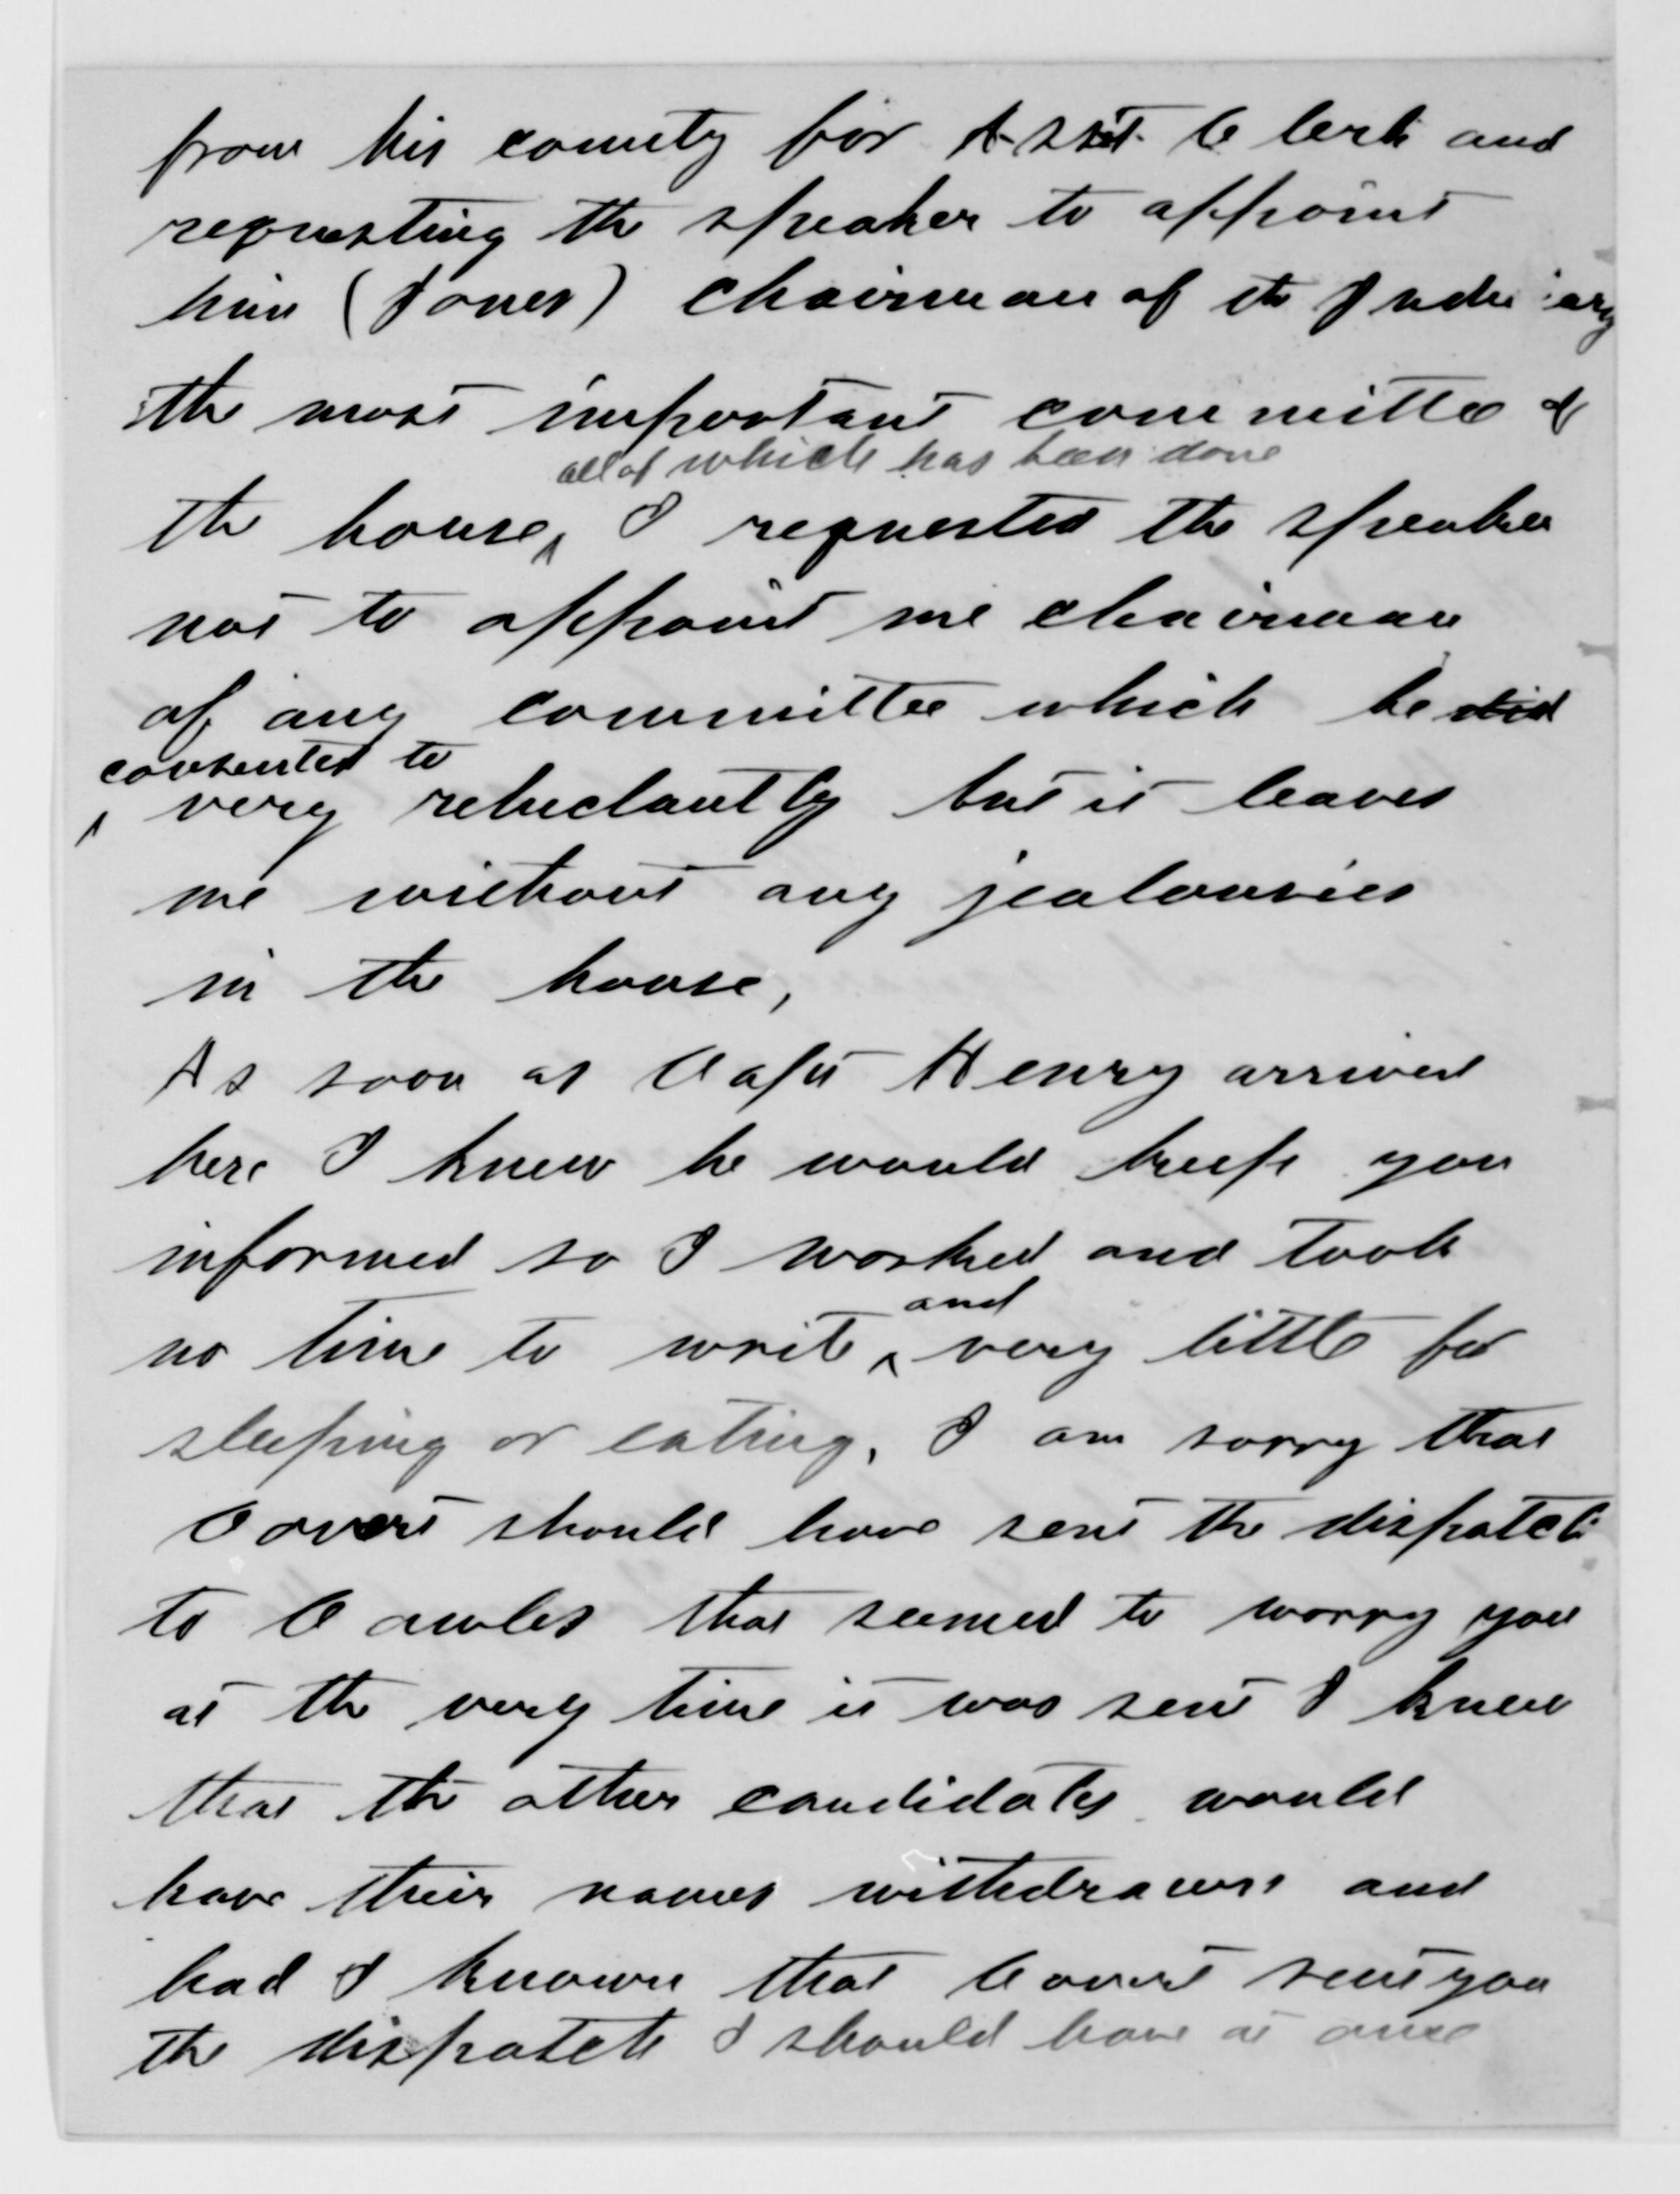 from his county for Asst. Clerk and
requesting the speaker to appoint
him (Jones) chairman of the Judiciary
the most important committee of
all of which has been done
the house, I requested the speaker
not to appoint me chairman
of any committee which he did
consented to
very reluctantly but it leaves
me without any jealousies
in the house,
As soon as Capt Henry arrived
here I knew he would keep you
informed so I worked and took
and
no time to write very little for
sleeping or eating. I am sorry that
Covert should have sent the dispatch
to Cawles that seemed to worry you
at the very time it was sent I knew
that the other candidates would
have their names withdrawn and
had I known that Covert sent you
the dispatch I should have at once